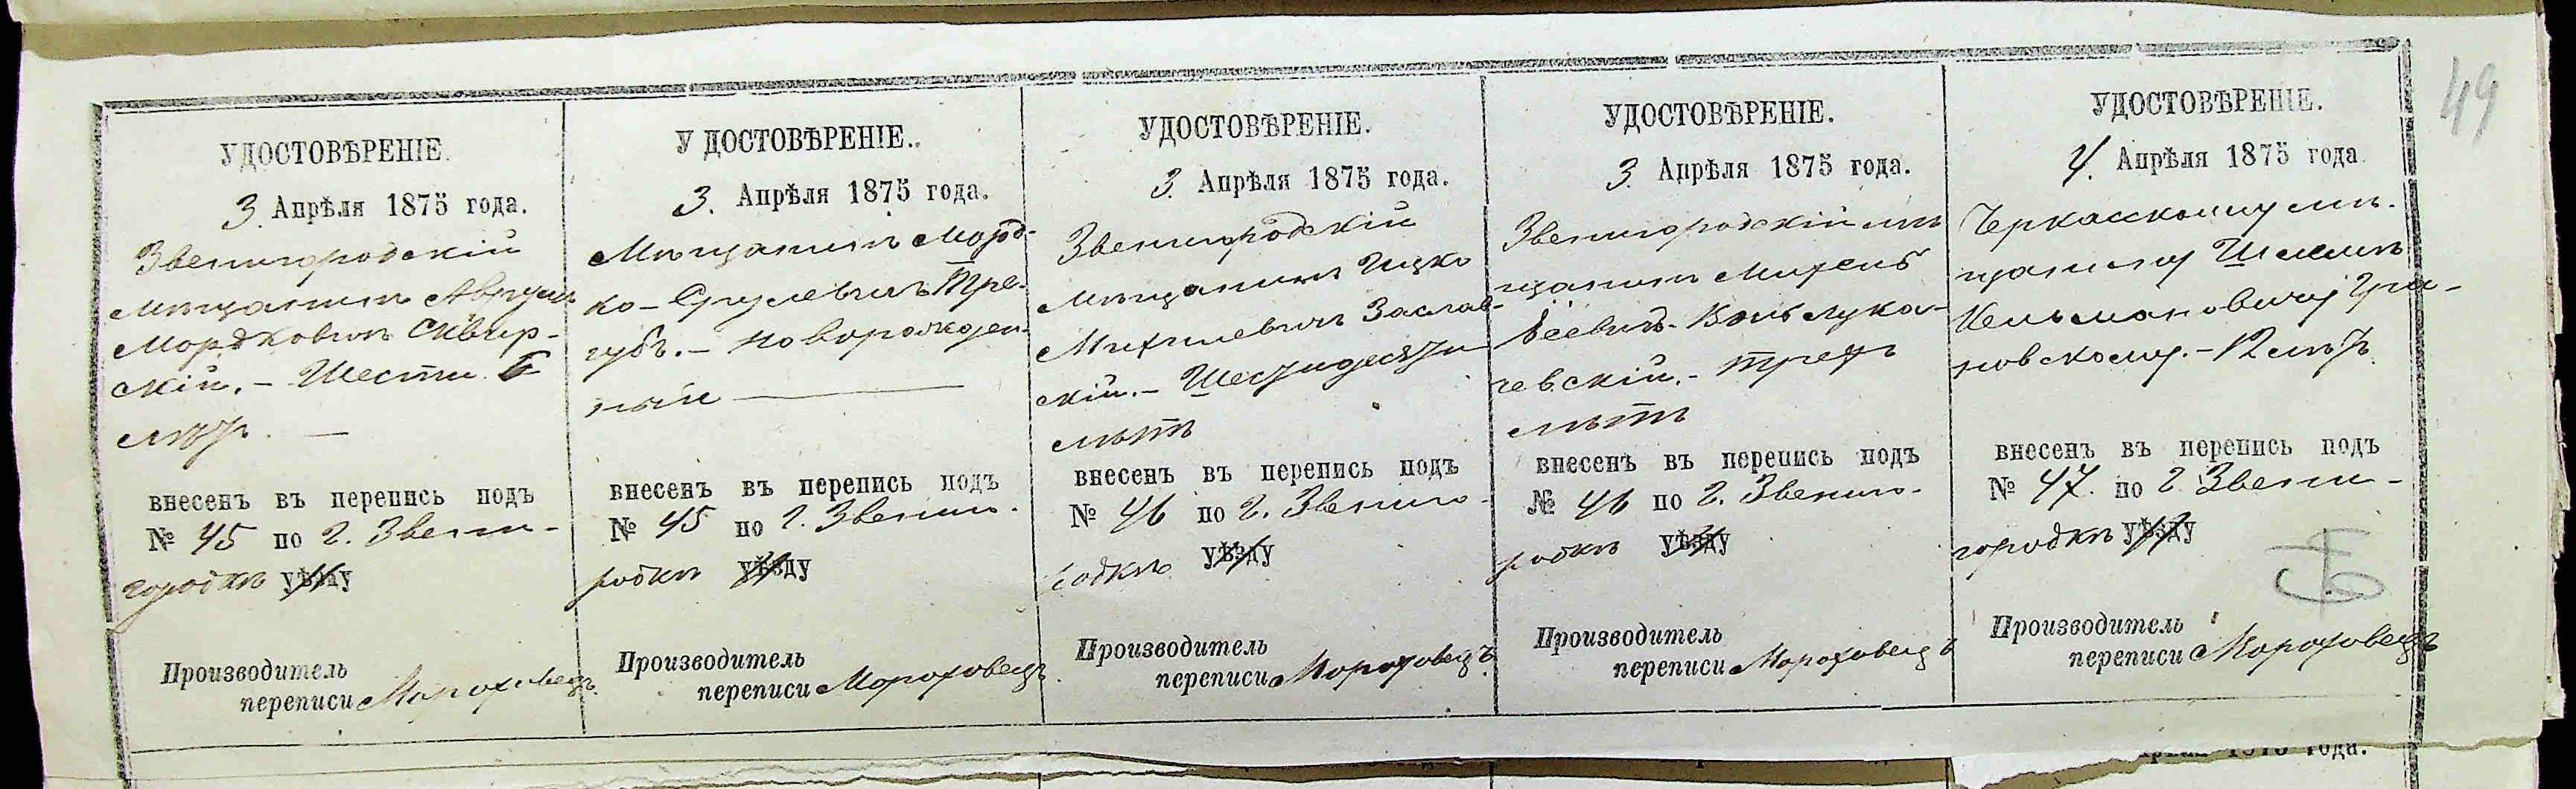 49
УДОСТОВѢРЕНІЕ.
3. Апрѣля 1875 года.
Звенигородскій
мѣщанинъ Аврумъ
Мордковичъ Сквир-
скій. – Шести
лѣтъ. –
внесенъ въ перепись подъ
№ 45 по г. Звени-
городкѣ уѣзду
Производитель
переписи Мороховецъ
У ДОСТОВѢРЕНІЕ..
3. Апрѣля 1875 года.
Мѣщанинъ Морд-
ко-Срулевичъ Тре-
губъ. – новорожден-
ный —
внесенъ въ перепись подъ
№ 45 по г. Звениго-
родкѣ уѣзду
Производитель
переписи Мороховецъ
УДОСТОВѢРЕНІЕ.
3. Апрѣля 1875 года.
Звенигородскій
мѣщанинъ Ицко
Михилевичъ Заслав-
скій. – Шестидесяти
лѣтъ
внесенъ въ перепись подъ
№ 46 по г. Звениго-
родкѣ уѣзду
Производитель
переписи Мороховецъ
УДОСТОВѢРЕНІЕ.
3. Апрѣля 1875 года.
Звенигородскій мѣ
щанинъ
чевскій. – трехъ
лѣтъ
внесенъ въ перепись подъ
№ 46 по г. Звениго-
родкѣ уѣзду
Производитель
переписи Мороховецъ
УДОСТОВѢРЕНІЕ.
4. Апрѣля 1875 года
Черкасскому мѣ-
щанину
Кельмановичу Гра-
новскому. – 12 лѣтъ
внесенъ въ перепись подъ
№ 47. по г. Звени-
городкѣ уѣзду
Производитель
переписи Мороховецъ
1875 года.